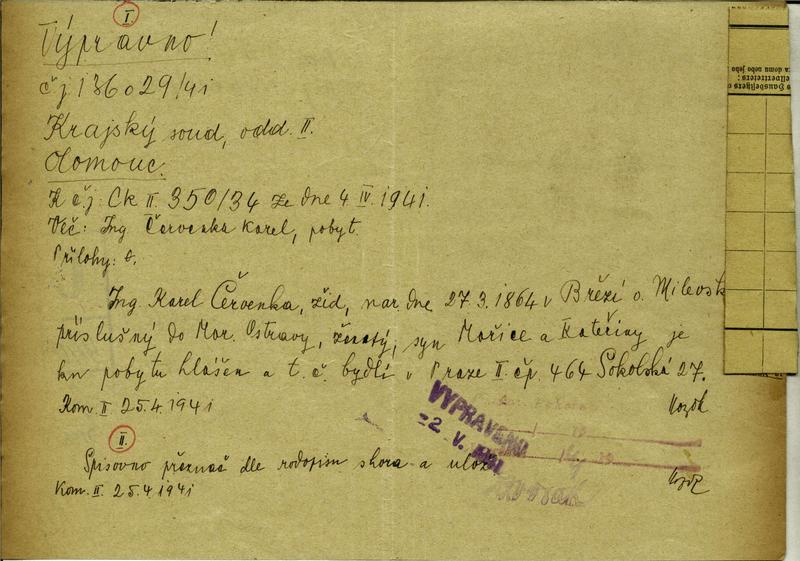 I
Výpravno!
č j 136029/41
Krajský soud, odd. II.
Olomouc.
K č.j. Ck II. 350/34 ze dne 4 IV. 1941.
Věc: Ing. Červenka Karel, pobyt.
Přílohy:
Ing. Karel Červenka, žid, nar. dne 27.3.1864 v Březí o. Milevsk
příslušný do Mor. Ostravy, ženatý, syn Mořice a Kateřiny je
ku pobytu hlášen a t. č. bydlí v Praze II. čp. 464 Sokolská 27.
Kom. II 25.4.1941
VYPRAVENO
-2 V. 1941
II.
Spisovno přeznač dle rodopisu shora a ulož
Kom. II. 25.4 1941
s Hausbesitzers o
ellvertreters:
ta domu nebo jeho